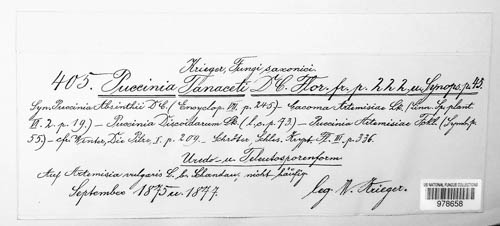 Krieger, Fungi saxonici.
405. Puccinia Tanaceti D'C. Flor. fr. p. 222, u. Synops. p. 45.
Sym. Puccinia Absinthii D'C. (Encyclop. VIII, p. 245) – Caeoma Artemisiae Lk. (Linn. Sp. plant.
VI. 2. p. 19.) – Puccinia Discoidarum Lk. (l. c. p. 73) – Puccinia Artemisiae Fckl. (Symb. p.
55) – cfr. Winter, Die Pilze, I. p. 209. – Schröter, Schles. Krypt. Fl. III, p. 336.
Uredo- u. Teleutosporenform
Auf Artemisia vulgaris L. b. Schandau, nicht häufig.
September 1875 u. 1877.
leg. W. Krieger.
US NATIONAL FUNGUS COLLECTIONS
978658